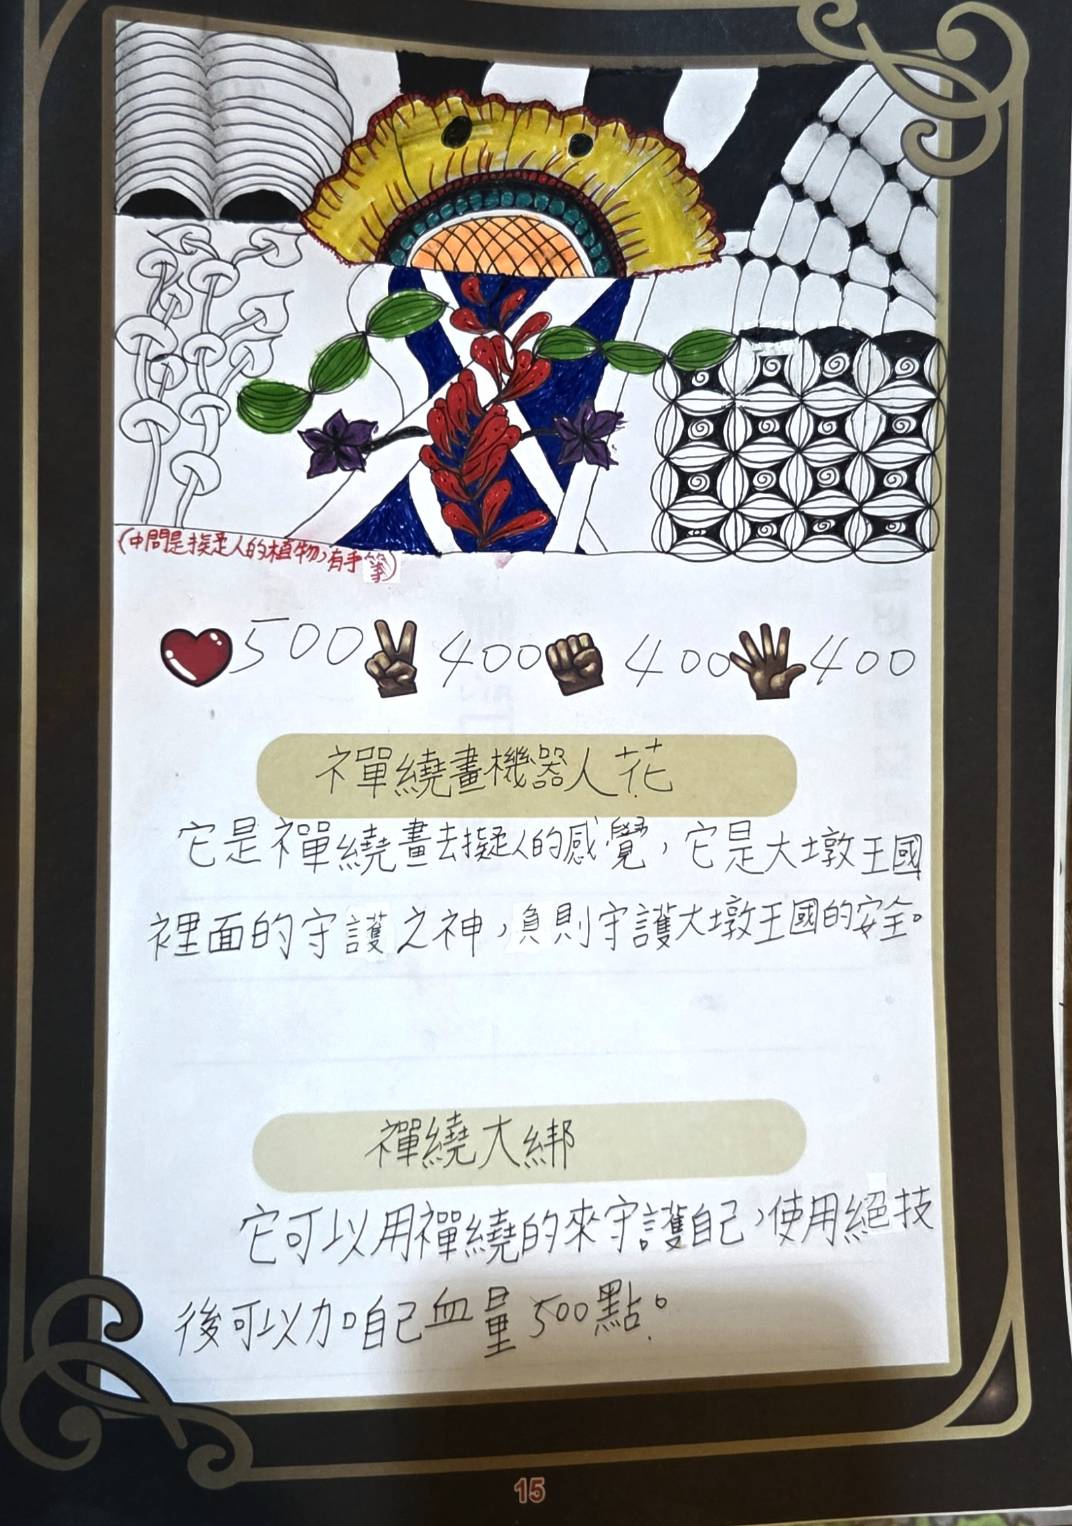 (中間是擬人的植物,有手等)
500 400 400 400
禪繞畫機器人花
它是禪繞畫去擬人的感覺，它是大墩王國
裡面的守護之神，負則守護大墩王國的安全。
禪繞大綁
它可以用禪繞的來守護自己，使用絕技
後可以加自己血量500點。
15